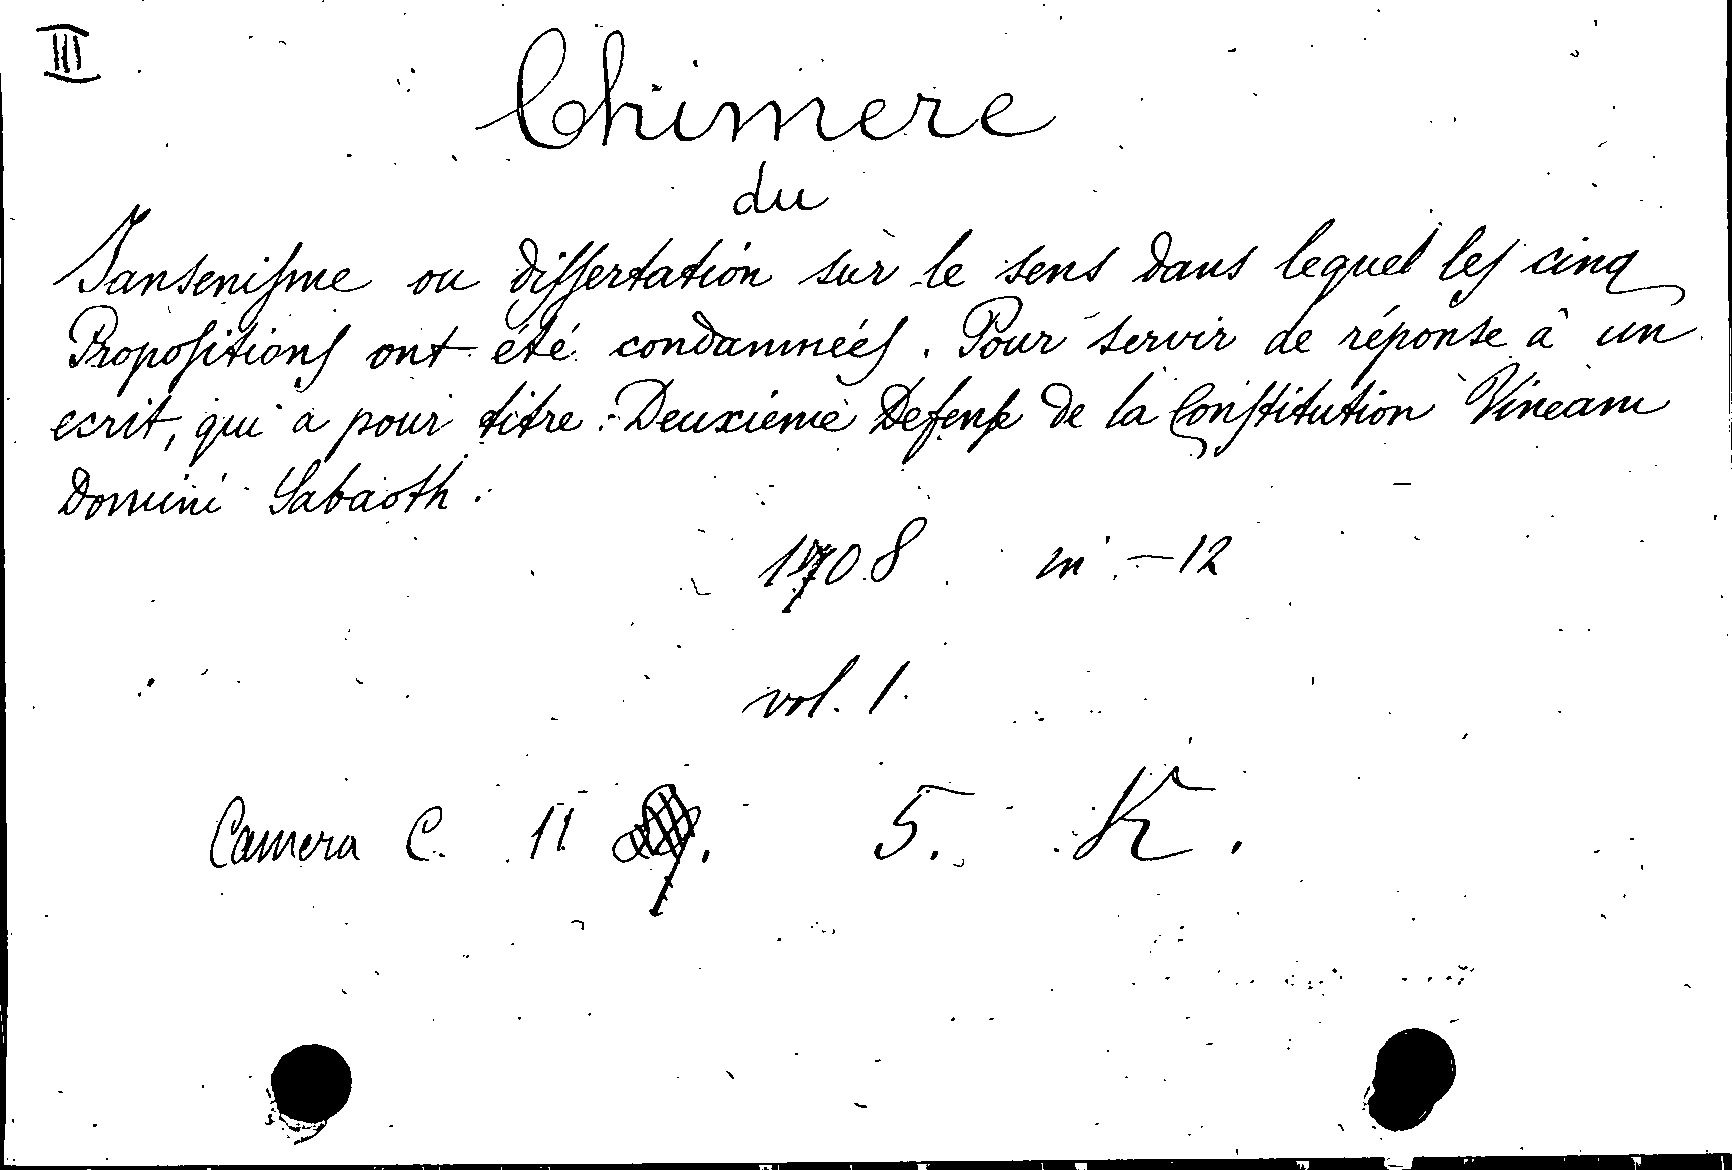 III
Chimere
du
Jansenisme ou dissertation sur le sens dans lequel les cinq
Propositions ont été condamnées. Pour servir de réponse à un
ecrit, qui a pour titre: Deuxieme Defense de la Constitution Vineam
Domini Sabaoth.
1708 in-12
vol. 1.
Camera C. 11 5. K.